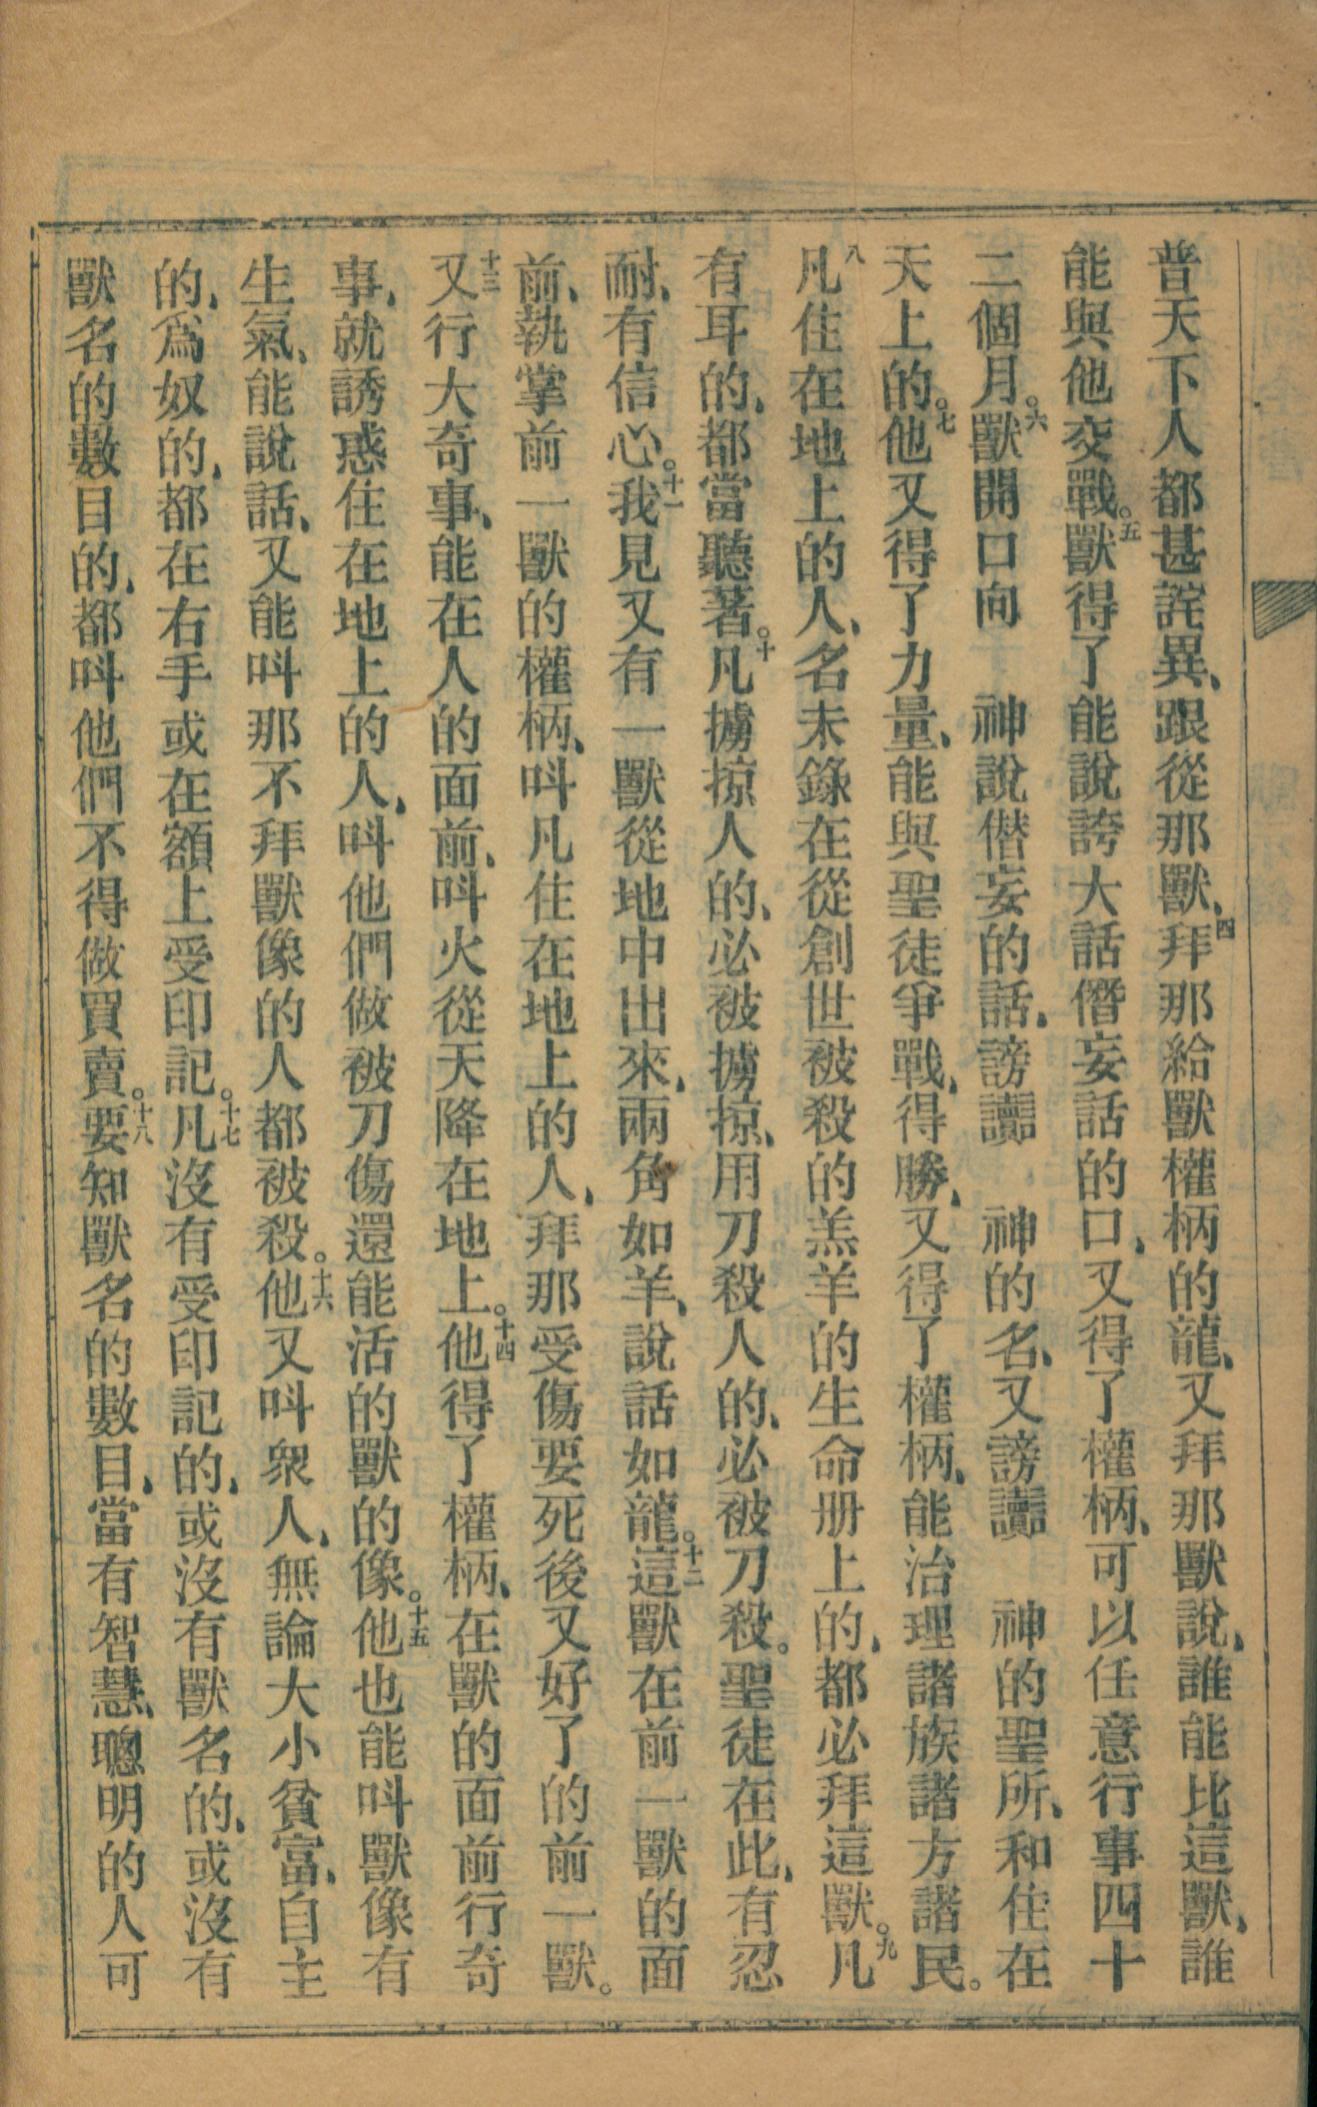 普天下人都甚詫異、跟從那獸、四拜那給獸權柄的龍、又拜那獸說、誰能比這獸、誰
能與他交戰。五獸得了能說誇大話僭妄話的口、又得了權柄、可以任意行事四十
二個月。六獸開口向　神說僭妄的話、謗讟　神的名、又謗讟　神的聖所、和住在
天上的。七他又得了力量、能與聖徒爭戰、得勝、又得了權柄、能治理諸族諸方諸民。
八凡住在地上的人、名未錄在從創世被殺的羔羊的生命册上的、都必拜這獸。九凡
有耳的、都當聽著。十凡擄掠人的、必被擄掠、用刀殺人的、必被刀殺。聖徒在此、有忍
耐、有信心。十一我見又有一獸從地中出來、兩角如羊、說話如龍。十二這獸在前一獸的面
前、執掌前一獸的權柄、呌凡住在地上的人、拜那受傷要死後又好了的前一獸。
十三又行大奇事、能在人的面前、呌火從天降在地上。十四他得了權柄、在獸的面前行奇
事、就誘惑住在地上的人、呌他們做被刀傷還能活的獸的像。十五他也能呌獸像有
生氣、能說話、又能呌那不拜獸像的人都被殺。十六他又呌衆人、無論大小貧富、自主
的、爲奴的、都在右手或在額上受印記。十七凡沒有受印記的、或沒有獸名的、或沒有
獸名的數目的、都呌他們不得做買賣。十八要知獸名的數目、當有智慧、聰明的人可